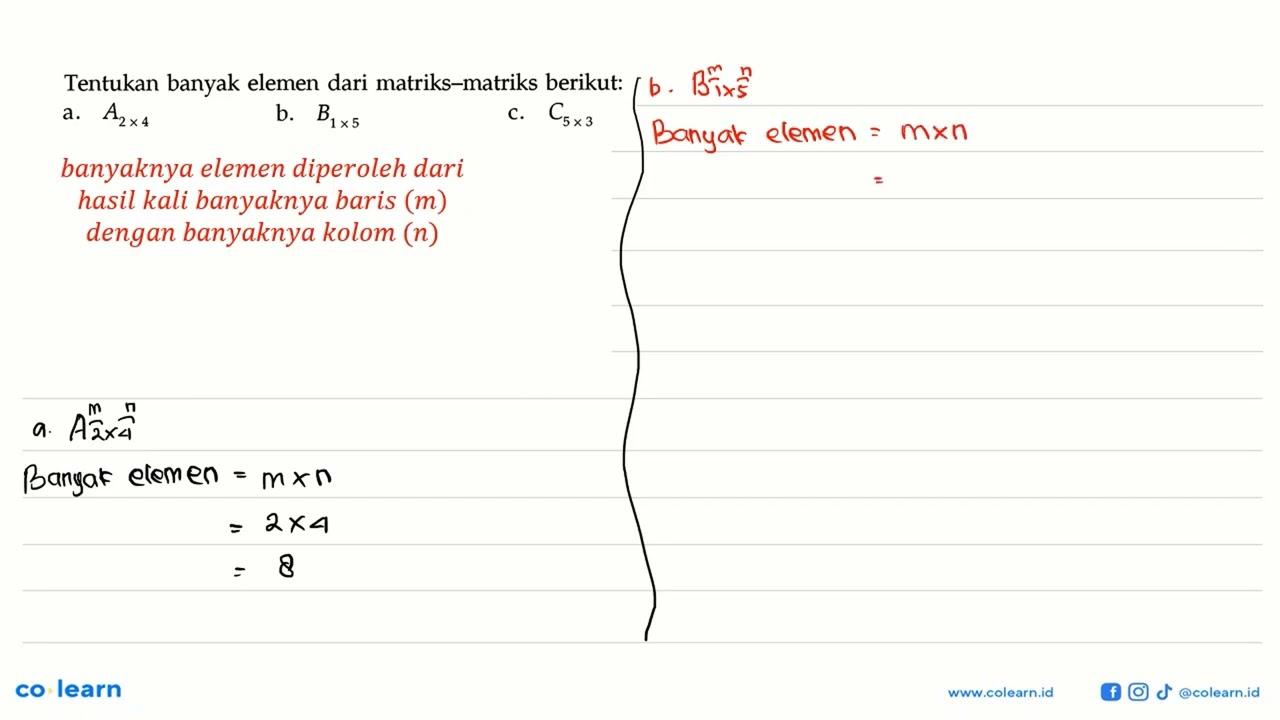 Tentukan banyak elemen dari matriks–matriks berikut:
a. A₂ₓ₄ b. B₁ₓ₅ c. C₅ₓ₃
banyaknya elemen diperoleh dari
hasil kali banyaknya baris (m)
dengan banyaknya kolom (n)
m n
a. A₂ₓ₄
Banyak elemen = m x n
= 2 x 4
= 8
m n
b. B₁ₓ₅
Banyak elemen = m x n
=
co learn
www.colearn.id @colearn.id